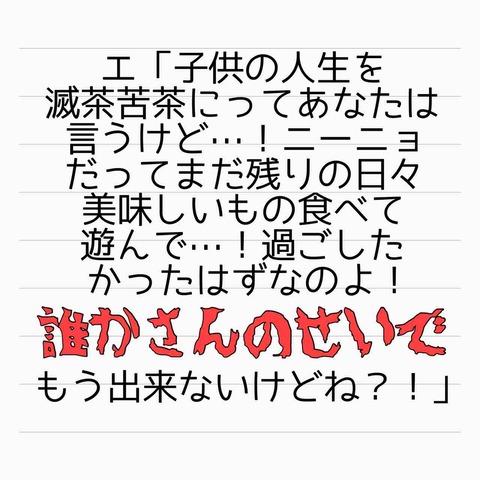 エ「子供の人生を
滅茶苦茶にってあなたは
言うけど…！ニーニョ
だってまだ残りの日々
美味しいもの食べて
遊んで…！過ごした
かったはずなのよ！
誰かさんのせいで
もう出来ないけどね？！」